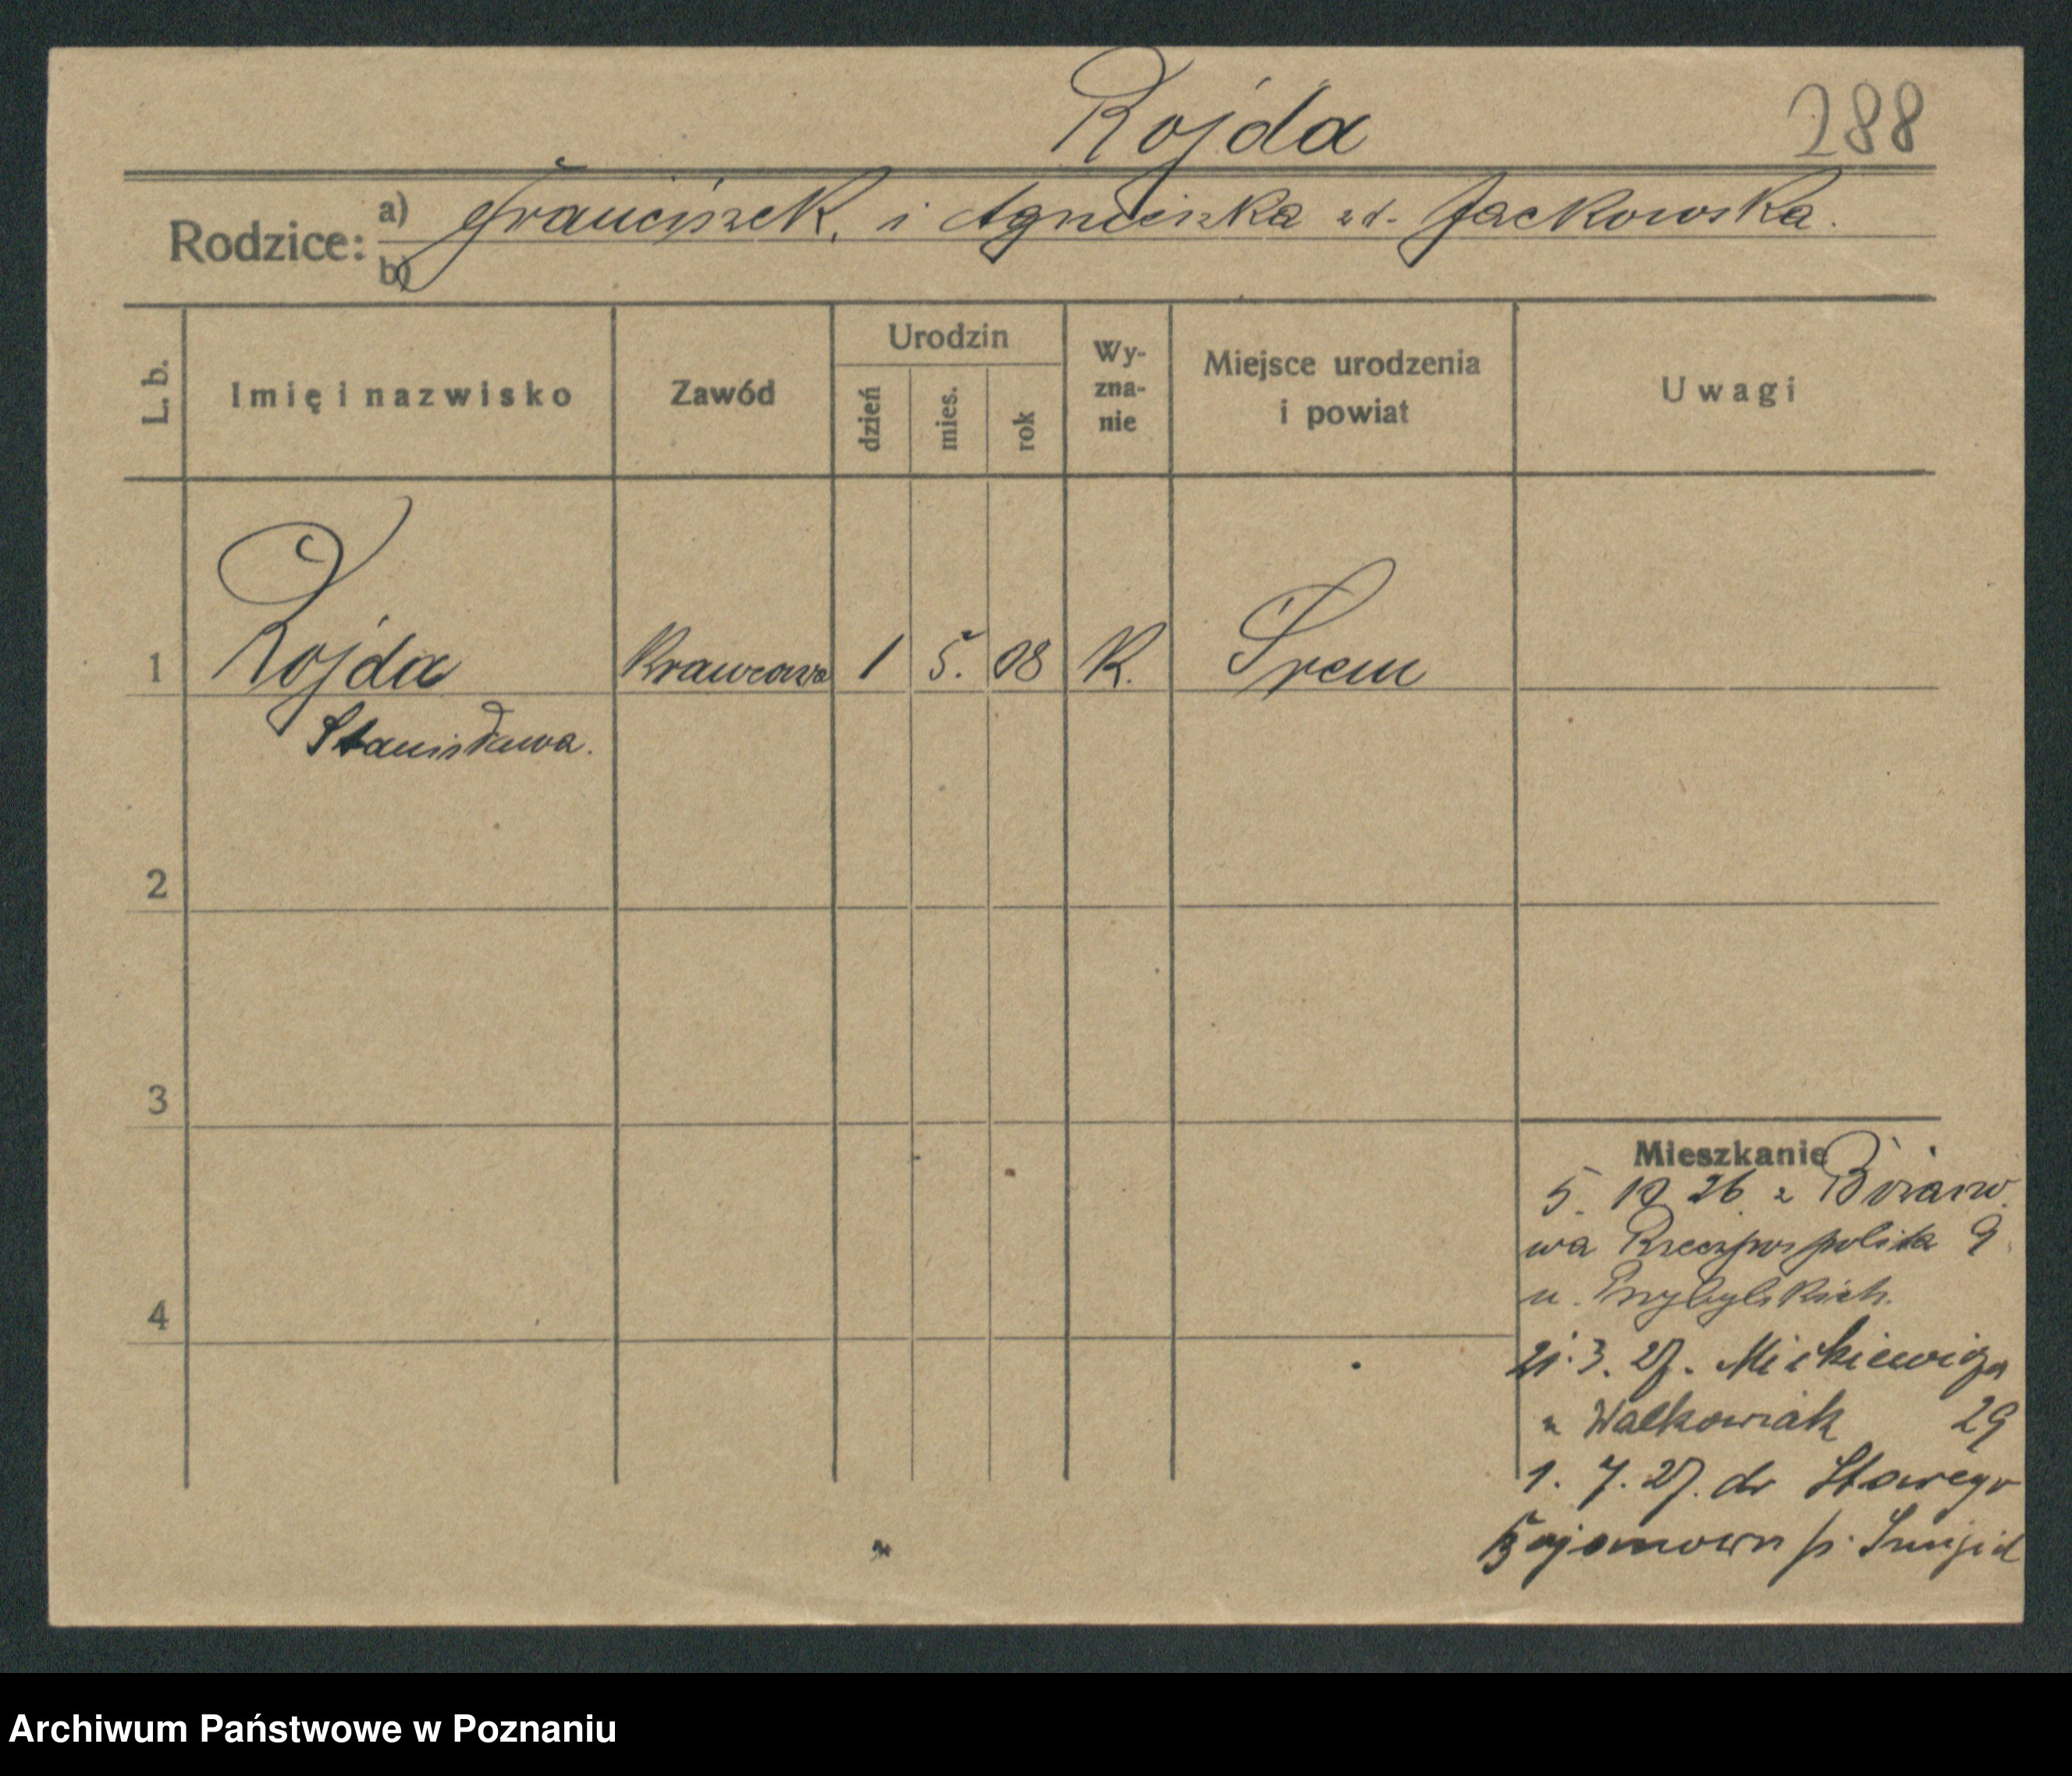 Rojda
288
Rodzice:
a) Franciszek, i Agnieszka zd. Jackowska.
b)
L. b.
Imię i nazwisko
Zawód
Urodzin
dzień
mies.
rok
Wy-
zna-
nie
Miejsce urodzenia
i powiat
Uwagi
1 Rojda Krawcowa 1 5. 08 K. Śrem
Stanisława.
2
3
4
Mieszkanie
5. 10 26. z
wa Rzeczpospolita 9
u. Przybylskich.
21.3. 27. Mickiewicza
u Walkowiak 29
1. 7. 27. do Starego
p.
Archiwum Państwowe w Poznaniu